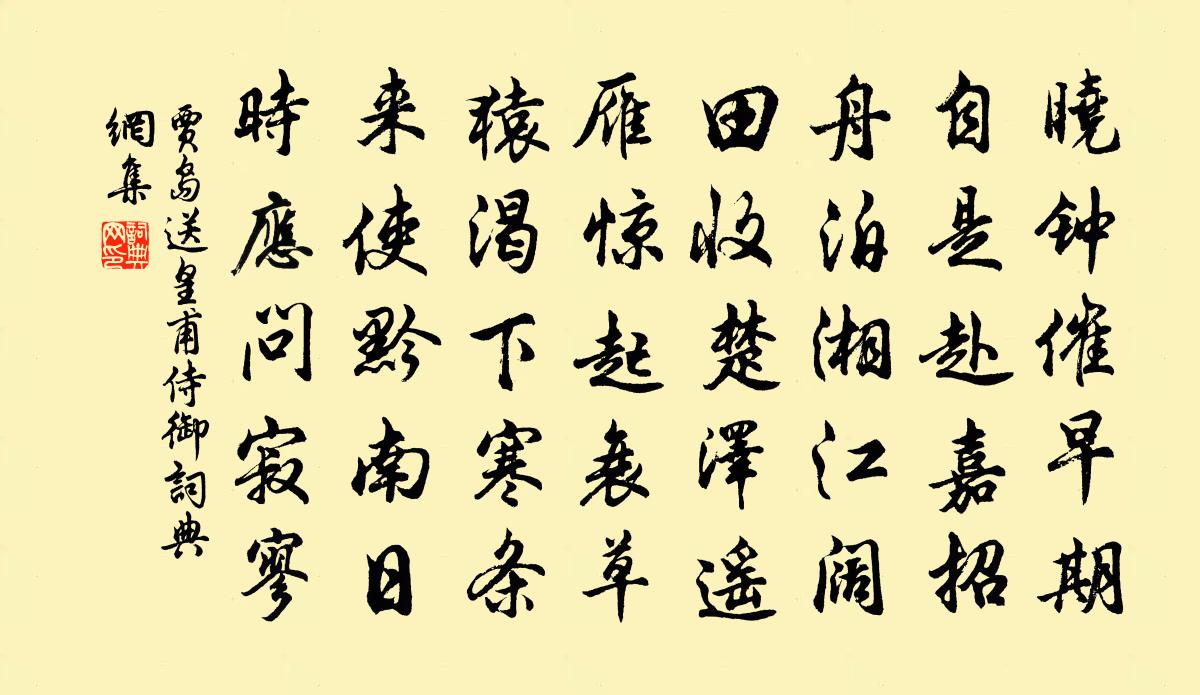 曉钟催早期
自是赴嘉招
舟泊湘江阔
田收楚澤遥
雁惊起衰草
猿渴下寒条
来使黔南日
時應问寂寥
賈岛送皇甫侍御詞典
網集
詞典網印